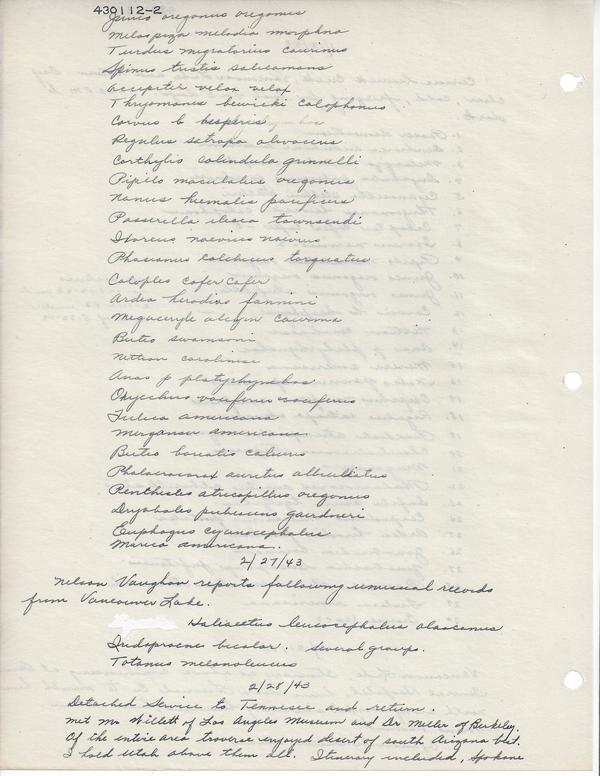 430112-2
Junco oregonus oregonus
Melospiza melodia morphna
Turdus migratorius caurinus
Spinus tristis salicamans
Accipiter velox velox
Thryomanes bewicki calophonus
Corvus b hesperis
Regulus satrapa olivaceus
Corthylio calendula grinnelli
Pipilo maculatus oregonus
Nannus hiemalis pacificus
Passerella iliaca townsendi
Ixoreus naevius naevius
Phasianus colchicus torquatus
Colaptes cafer cafer
Ardea herodias fannini
Megaceryle alcyon caurina
Buteo swainsoni
Nettion carolinense
Anas p platyrhynchos
Oxyechus vociferus vociferus
Fulica americana
Merganser americana
Buteo borealis calurus
Phalacrocorax auritus albociliatus
Penthestes atricapillus oregonus
Dryobates pubescens gairdneri
Euphagus cyanocephalus
Mareca americana.
2/27/43
Nelson Vaughan reports following unusual records
from Vancouver Lake.
Haliaeetus leucocephalus alascanus
Iridoprocne bicolor. Several groups.
Totanus melanoleucus
2/28/43
Detached Service to Tennessee and return.
Met Mr Willett of Los Angeles Museum and Dr Miller of Berkeley.
Of the entire area traverse enjoyed desert of south Arizona but.
I hold Utah above them all. Itinerary included, Spokane